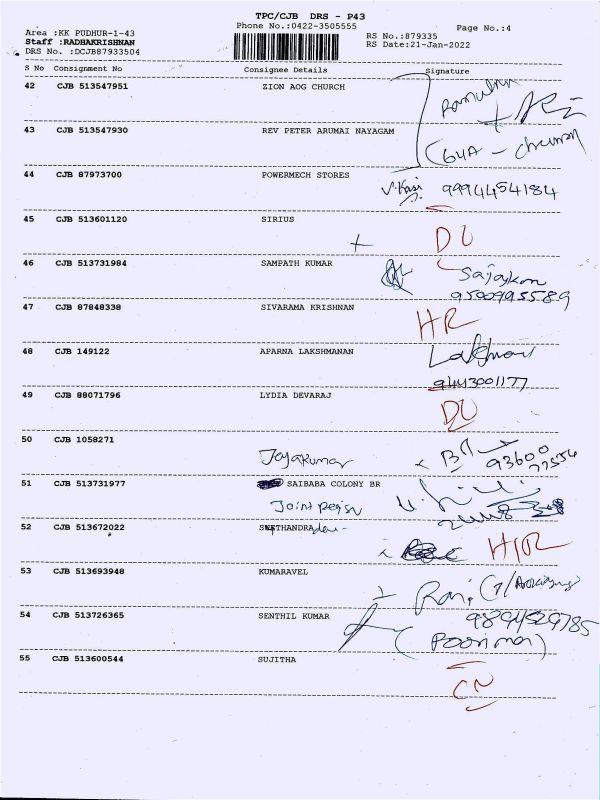 TPC/CJB DRS - P43
Phone No.:0422-3505555
Page No.:4
Area :KK PUDHUR-1-43
RS No.:879335
Staff :RADHAKRISHNAN
RS Date:21-Jan-2022
DRS No. :DCJB87933504
S No Consignment No Consignee Details Signature
42 CJB 513547951 ZION AOG CHURCH
43 CJB 513547930 REV PETER ARUMAI NAYAGAM
44 CJB 87973700 POWERMECH STORES
V.Kasi 9994454184
45 CJB 513601120 SIRIUS
DL
46 CJB 513731984 SAMPATH KUMAR
9500995589
47 CJB 87848338 SIVARAMA KRISHNAN
HR
48 CJB 149122 APARNA LAKSHMANAN
9443001177
49 CJB 88071796 LYDIA DEVARAJ
DL
50 CJB 1058271
Jayakumar
93600
77554
51 CJB 513731977 SAIBABA COLONY BR
52 CJB 513672022
H/R
53 CJB 513693948 KUMARAVEL
54 CJB 513726365 SENTHIL KUMAR
9894529785
55 CJB 513600544 SUJITHA
CN